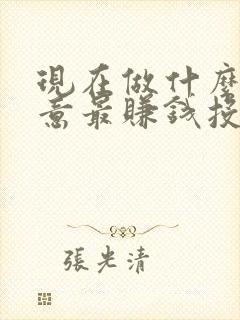 現在做什麼
意最賺錢投
張光清